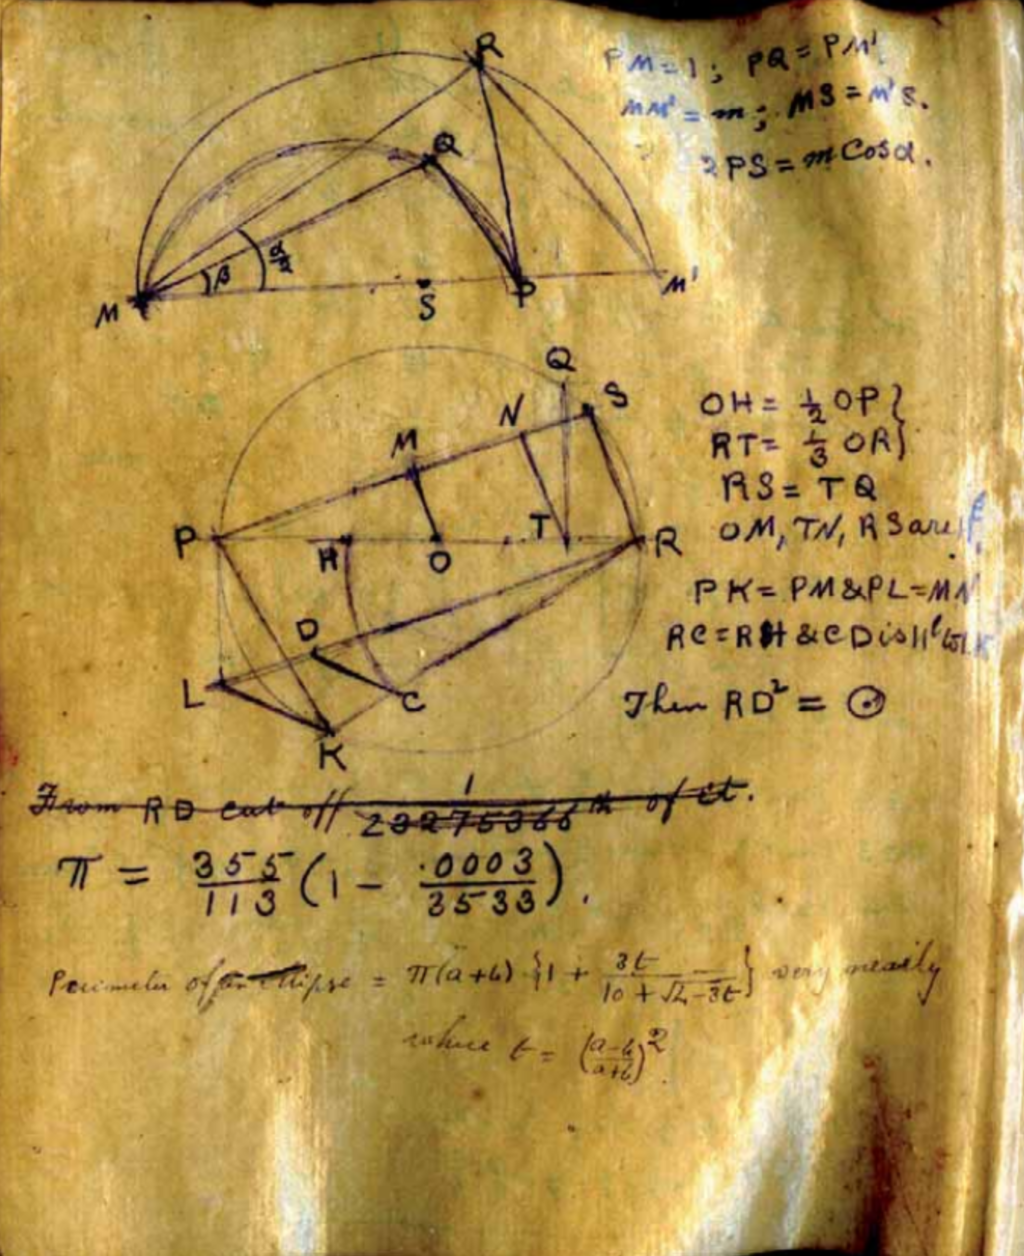 R
PM = 1 ; PQ = PM'.
MM' = m ; MS = M'S.
2PS = m Cos α.
Q
β
α/2
M
S
P
M'
Q
S
N
M
P
H
O
T
R
D
L
C
K
OH = 1/2 OP }
RT = 1/3 OR }
RS = TQ
OM, TN, RS are
PK = PM & PL = MN
RC = RH & CD is
Then RD² = ⊙
From RD cut off 1/23275366 th of it.
π = 355/113 (1 − .0003/3533).
Perimeter of an ellipse = π(a+b) {1 + 3t/(10 + √4−3t)} very nearly
where t = ((a−b)/(a+b))².